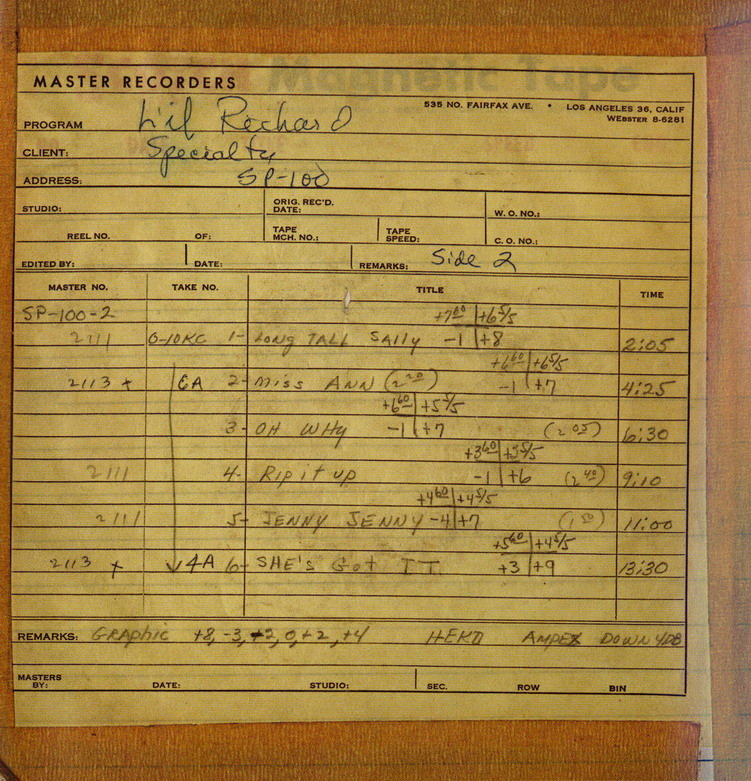 Magnetic Tape
MASTER RECORDERS
535 NO. FAIRFAX AVE. • LOS ANGELES 36, CALIF
WEBSTER 8-6281
PROGRAM L'il Richard
CLIENT: Specialty
ADDRESS: SP-100
STUDIO: ORIG. REC'D. DATE: W. O. NO.:
REEL NO. OF: TAPE MCH. NO.: TAPE SPEED: C. O. NO.:
EDITED BY: DATE: REMARKS: Side 2
MASTER NO. TAKE NO. TITLE TIME
SP-100-2 +7 60 | +6 5/5
2111 0-10KC 1- LONG TALL SAlly -1 | +8 2:05
+6 60 | +6 5/5
2113 x 6A 2- Miss ANN (2 20) -1 | +7 4:25
+6 60 | +5 5/5
3- OH WHy -1 | +7 (2 05) 6:30
+3 60 | +5 5/5
2111 4- Rip it up -1 | +6 (2 40) 9:10
+4 60 | +4 5/5
2111 5- JENNY JENNY -4 | +7 (1 50) 11:00
+5 60 | +4 5/5
2113 x 4A 6- SHE'S GOT IT +3 | +9 13:30
REMARKS: GRAPHIC +8, -3, +2, 0, +2, +4 AMPEX DOWN 4DB
MASTERS BY: DATE: STUDIO: SEC. ROW BIN